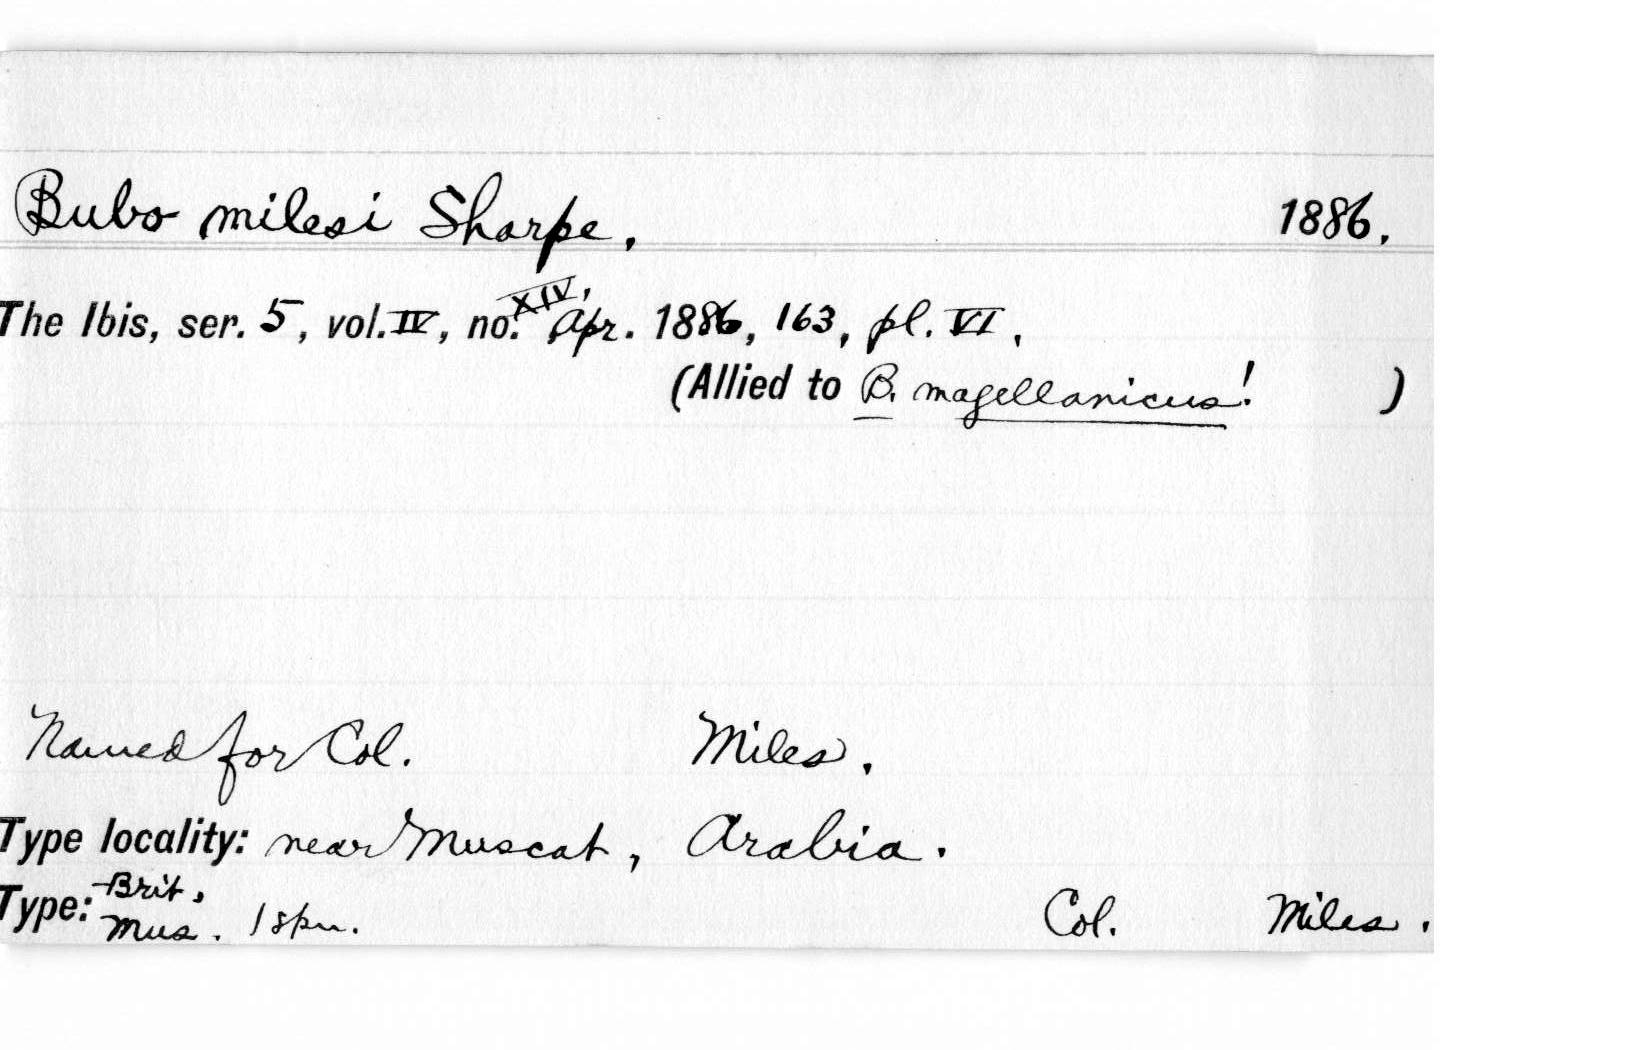 Bubo milesi Sharpe. 1886.
The Ibis, ser. 5, vol. IV, no. XIV, Apr. 1886, 163, pl. VI.
(Allied to B. magellanicus! )
Named for Col. Miles.
Type locality: near Muscat, Arabia.
Type: Brit. Mus. 1 spm. Col. Miles.